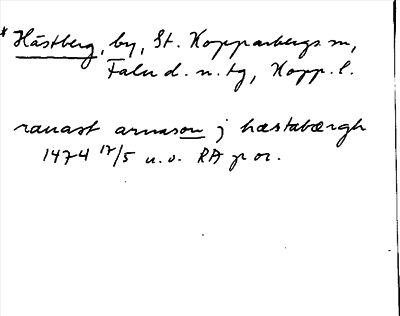 * Hästberg, by, St. Kopparbergs sn,
Falu d. n. tg, Kopp. l.
ranast arnason j hæstabærgh
1474 17/5 u. o. RA p or.